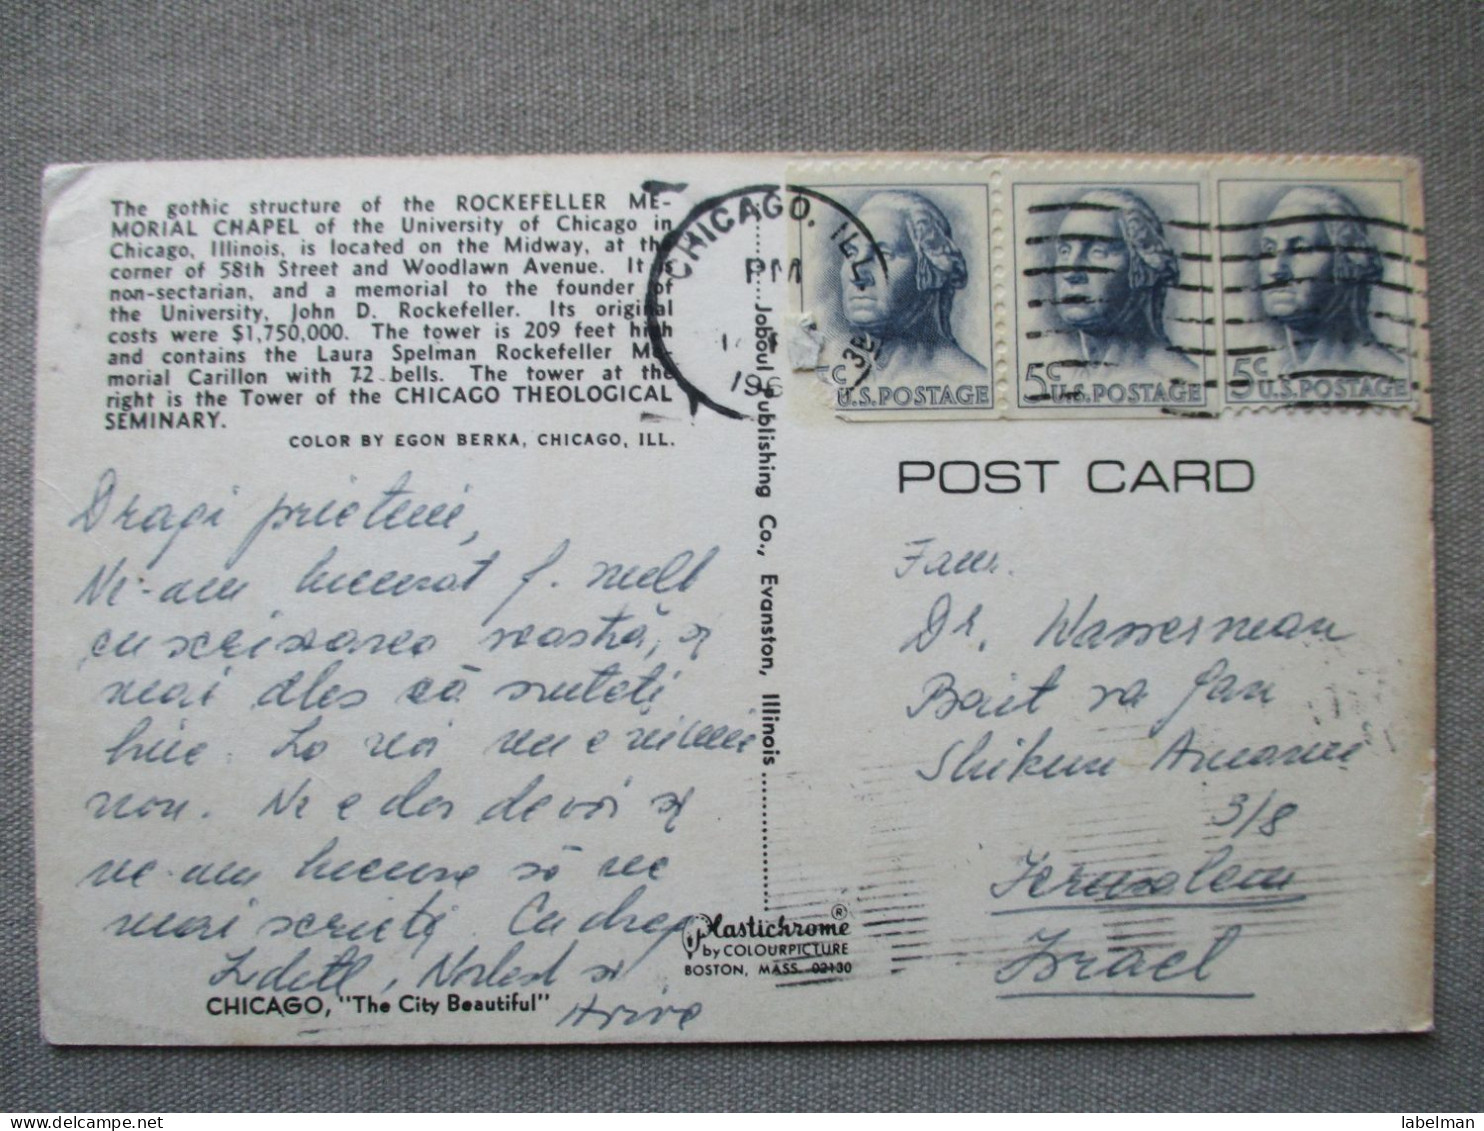 The gothic structure of the ROCKEFELLER ME-
MORIAL CHAPEL of the University of Chicago in
Chicago, Illinois, is located on the Midway, at the
corner of 58th Street and Woodlawn Avenue. It is
non-sectarian, and a memorial to the founder of
the University, John D. Rockefeller. Its original
costs were $1,750,000. The tower is 209 feet high
and contains the Laura Spelman Rockefeller Me-
morial Carillon with 72 bells. The tower at the
right is the Tower of the CHICAGO THEOLOGICAL
SEMINARY.
COLOR BY EGON BERKA, CHICAGO, ILL.
Dragi prieteni,
Ne-am bucurat f. mult
cu scrisoarea voastră, și
mai ales că sunteți
bine. La noi nu e nimic
nou. Ne e dor de voi și
ne-am bucura să ne
mai scrieți. Cu drag
Norbert și
CHICAGO, "The City Beautiful"
Joboul Publishing Co., Evanston, Illinois
Plastichrome ®
by COLOURPICTURE
BOSTON, MASS. 02130
CHICAGO, ILL.
PM
196
5c U.S.POSTAGE
5c U.S.POSTAGE
5c U.S.POSTAGE
POST CARD
Fam.
Dr. Wasserman
Bait va Gan
Shikun Amami
3/8
Jerusalem
Israel
labelman
www.delcampe.net